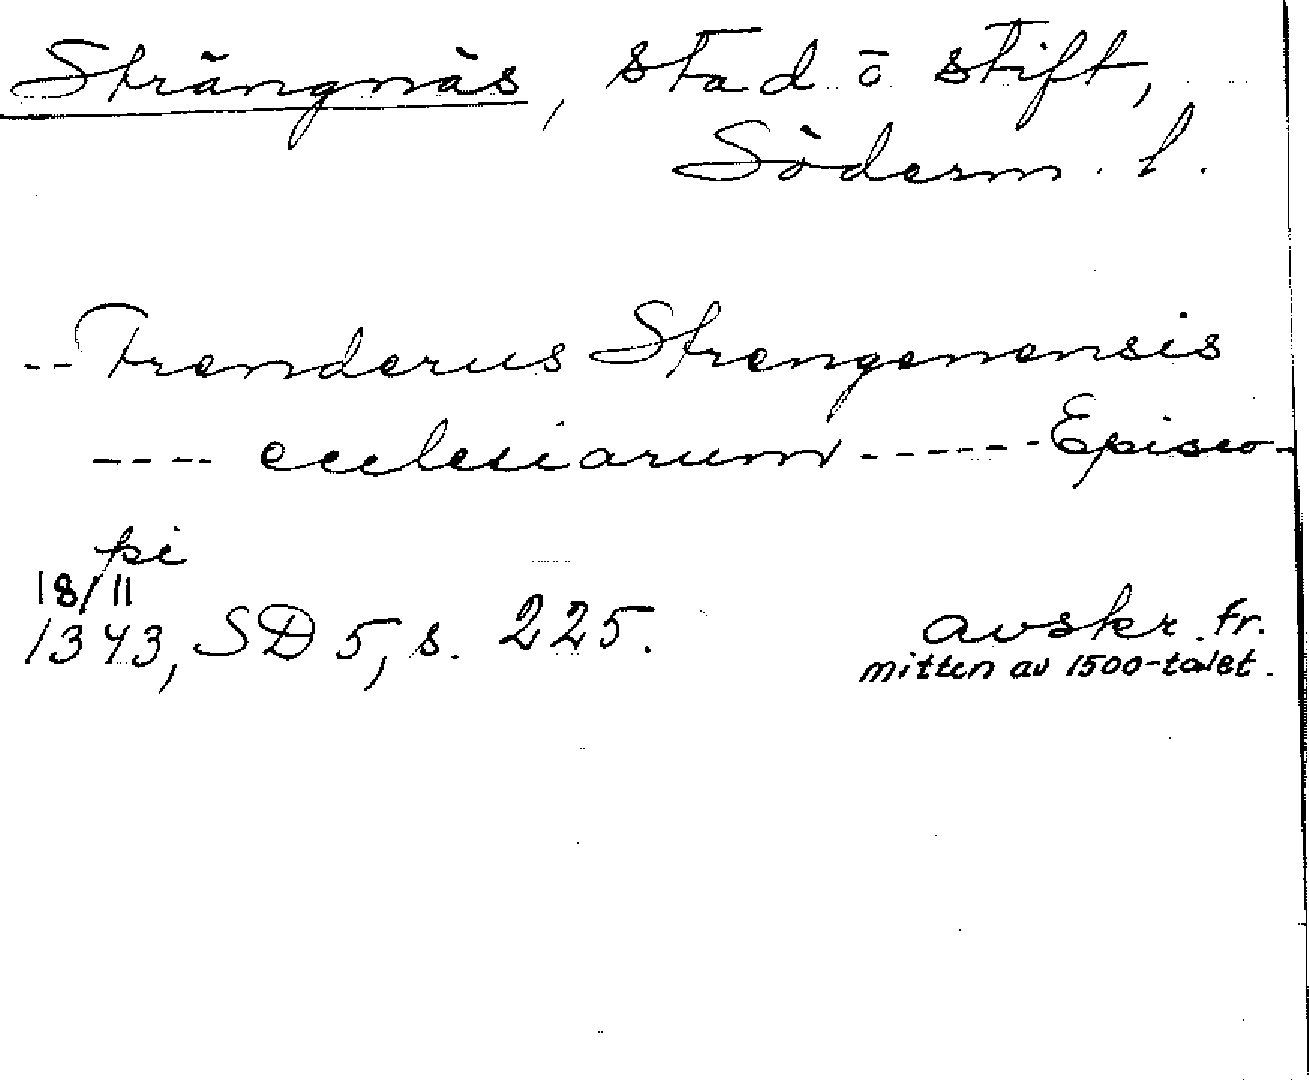 Strängnäs, stad o stift,
Söderm. l.
-- Frenderus Strengenensis
---- ecclesiarum ----- Episco-
pi
18/11
1343, SD 5, s. 225.
avskr. fr.
mitten av 1500-talet.